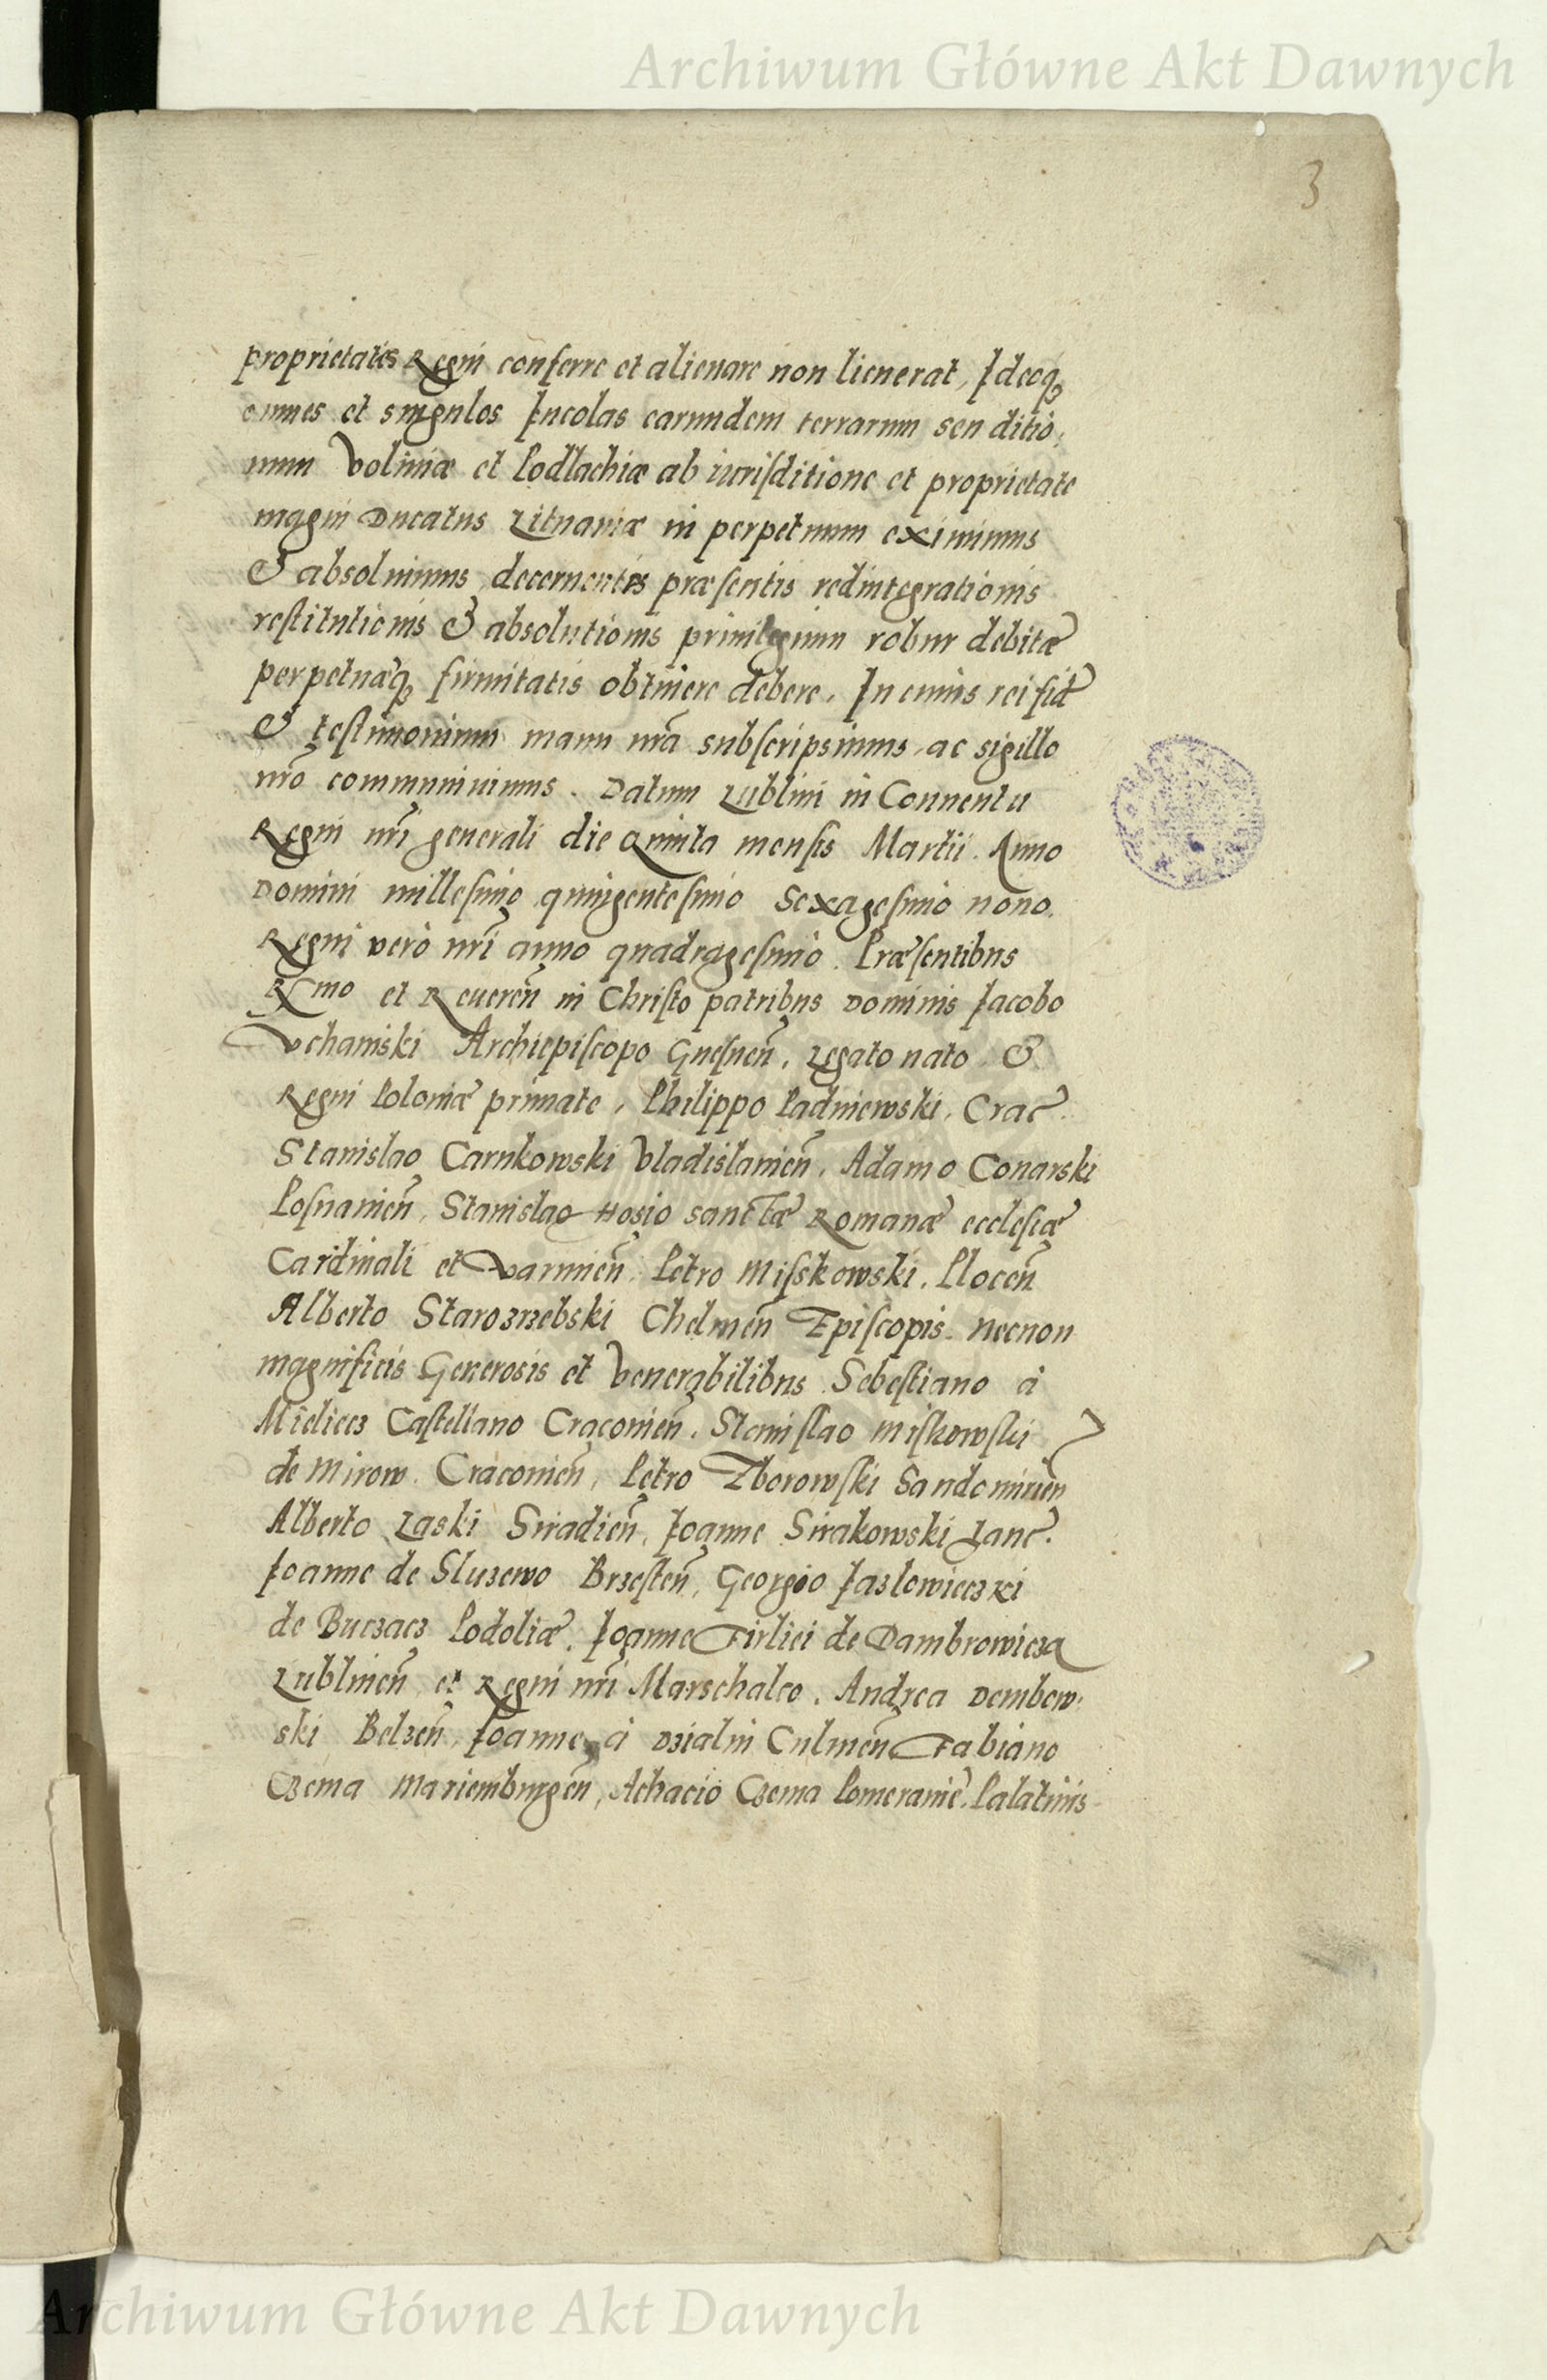 Archiwum Główne Akt Dawnych
3
proprietatis Regni conferre et alienare non licuerat, Ideoq₃
omnes et singulos Incolas earundem terrarum seu ditio,
num Voliniæ et Podlachiæ ab iurisditione et proprietate
magni Ducatus Lituaniæ in perpetuum eximimus
& absoluimus, decernentes præsentis redintegrationis
restitutionis & absolutionis priuilegium robur debitæ
perpetuæq₃ firmitatis obtinere debere. In cuius rei fidē
& testimonium manu nrã subscripsimus, ac sigillo
nrõ communiuimus. Datum Lublini in Conuentu
Regni nrĩ generali die Quinta mensis Martii. Anno
Domini millesimo quingentesimo Sexagesimo nono.
Regni verò nrĩ anno quadragesimo. Præsentibus
Rmo et Reueren̄ in Christo patribus Dominis Jacobo
Vchanski Archiepiscopo Gnesnen̄. Legato nato &
Regni Poloniæ primate, Philippo Padniewski, Crac̄.
Stanislao Carnkowski Vladislauien̄, Adamo Conarski
Posnanien̄, Stanislao Hosio sanctæ Romanæ ecclesiæ
Cardinali et Varmien̄, Petro Misskowski, Plocen̄
Alberto Starozrzebski Chelmen̄ Episcopis. necnon
magnificis Generosis et Venerabilibus Sebestiano à
Mieliecz Castellano Cracouien̄. Stanislao Miskowski
de Mirow. Cracouien̄, Petro Zborowski Sandomirien̄
Alberto Laski Siradien̄, Joanne Sirakowski Lanc̄.
Joanne de Sluzewo Brzesten̄, Georgio Jazlowieczki
de Buczacz Podoliæ. Joanne Firliei de Dambrowicza
Lublinen̄ et Regni nrĩ Marschalco. Andrea Dembow,
ski Belzen̄, Joanne à Dzialin Culmen̄ Fabiano
Czema Mariemburgen̄, Achacio Czema Pomeraniē. Palatinis
Archiwum Główne Akt Dawnych